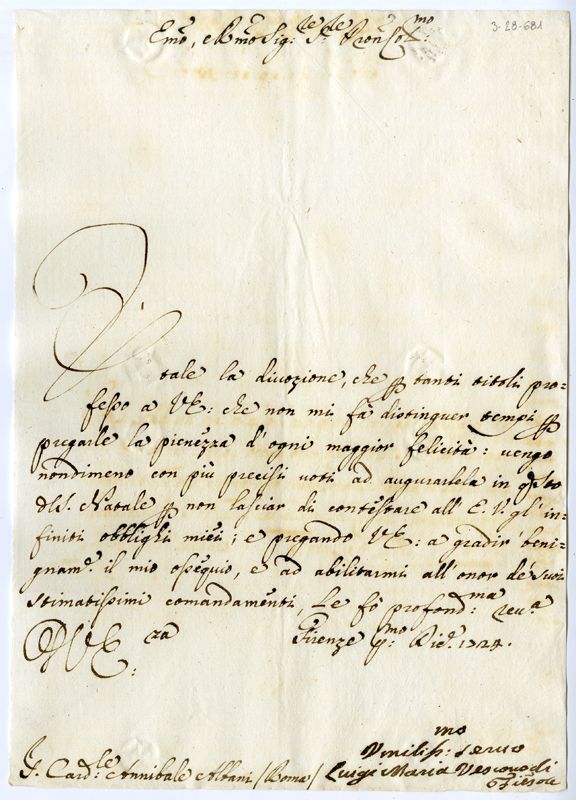 3-28-681
Emo, e Rmo Sig:re Sre Pron Colmo:
È tale la divozione, che p tanti titoli pro=
fesso a VE: che non mi fà distinguer tempi p
pregarle la pienezza d'ogni maggior felicità: vengo
nondimeno con più precisi voti ad augurarlela in qsto
del S. Natale p non lasciar di contestare all' E. V. gl' in=
finiti obblighi miei; e pregando VE: a gradir beni=
gname il mio ossequio, e ad abilitarmi all' onor de' suoi
stimatissimi comandamenti, Le fò profondma reva
VE za
Firenze pmo Dice. 1724.
Umiliss:mo servo
S. Cardle Annibale Albani (Roma)
Luigi Maria Vescovo di
Fiesole